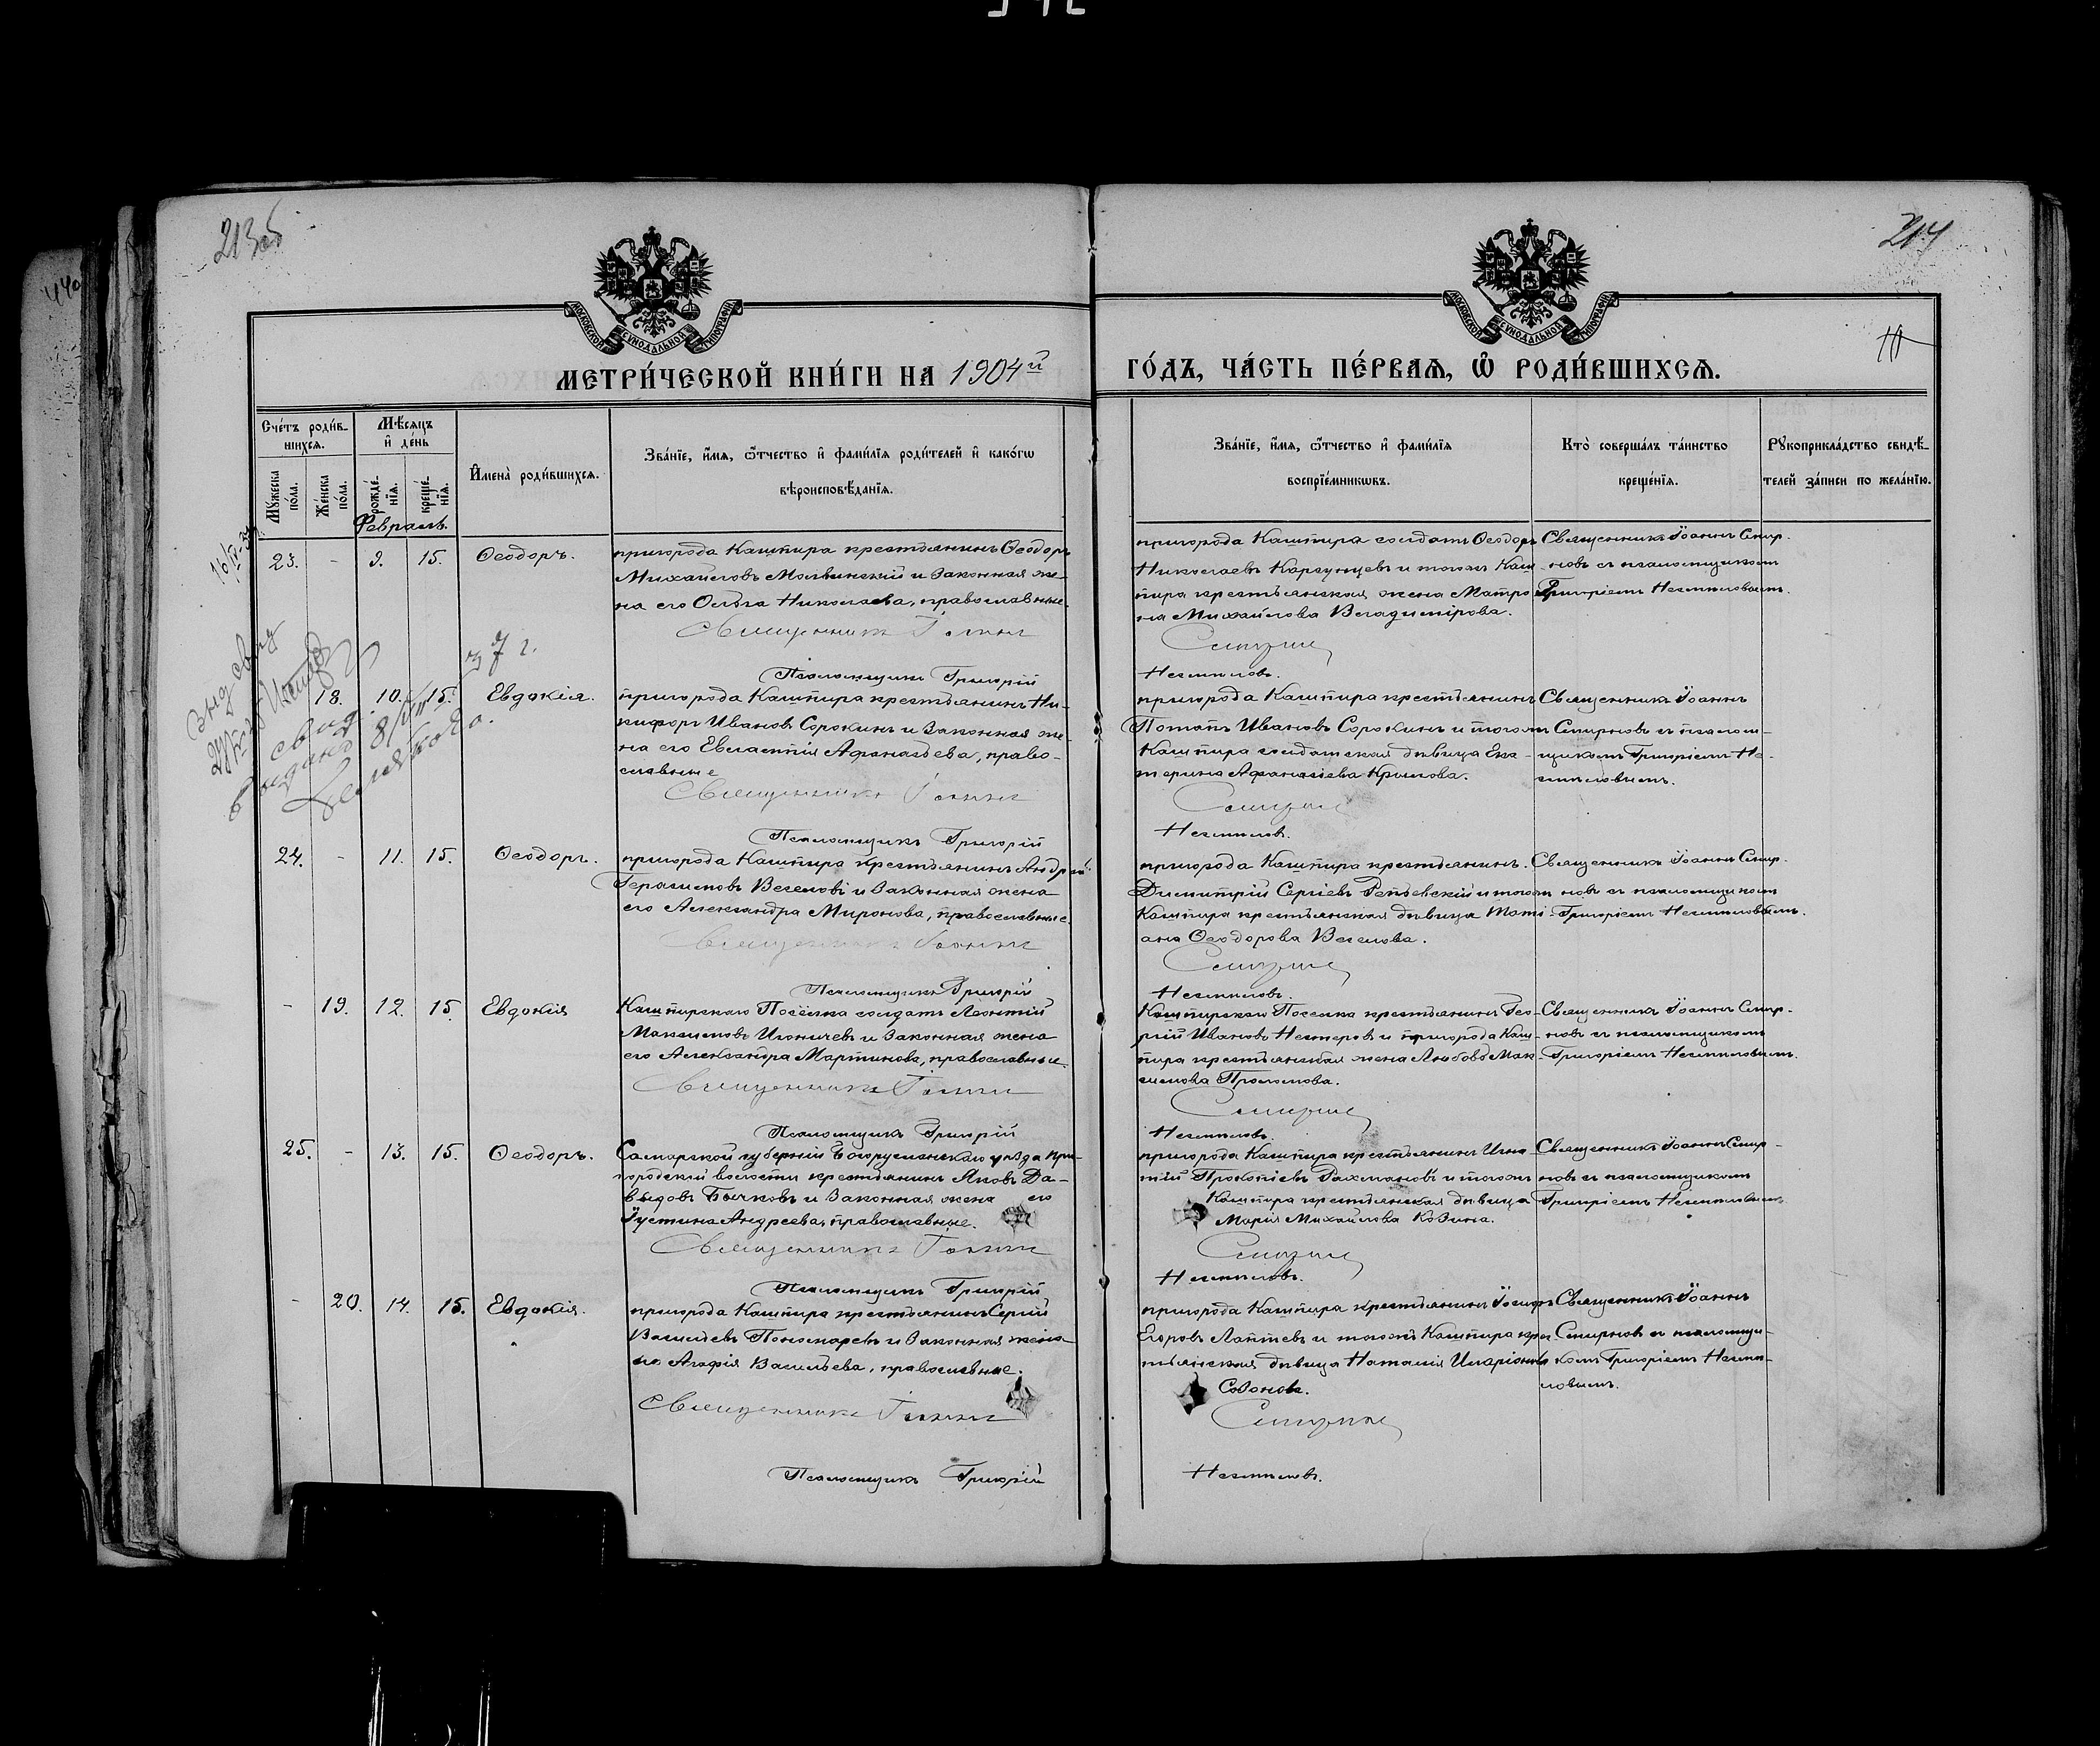 213об
214
10
МОСКОВСКОЙ СѴНОДАЛЬНОЙ ТИПОГРАФІИ
МОСКОВСКОЙ СѴНОДАЛЬНОЙ ТИПОГРАФІИ
МЕТРИ́ЧЕСКОЙ КНИ́ГИ НА 1904й ГО́ДЪ, ЧА́СТЬ ПЕ́РВАѦ, Ѽ РОДИ́ВШИХСѦ.
Сче́тъ роди́вшихсѧ.
Мѣ́сѧцъ и҆ де́нь
И҆мена̀ роди́вшихсѧ.
Зва́нїе, и҆́мѧ, ѻ҆́тчество и҆ фами́лїѧ роди́телей и҆ како́гѡ
вѣроисповѣ́данїѧ.
Мꙋ́жеска по́ла.
Же́нска по́ла.
рожде́нїѧ.
креще́нїѧ.
Зва́нїе, и҆́мѧ, ѻ҆́тчество и҆ фами́лїѧ
воспрїе́мникѡвъ.
Кто̀ соверша́лъ та́инство
креще́нїѧ.
Рꙋкоприкла́дство свидѣ́телей за́писи по жела́нїю.
Февраль.
23. - 9. 15. Ѳеодоръ.
пригорода Кашпира крестьянинъ Ѳеодоръ
Михайловъ Малвинскій и законная же-
на его Ольга Николаева, православные.
Священникъ Іоаннъ
Псаломщикъ Григорій
пригорода Кашпира солдатъ Ѳеодоръ
Николаевъ Каргунцевъ и того же Каш-
пира крестьянская жена Матро-
на Михайлова Владимірова.
Смирнов
Несмеловъ.
Священникъ Іоаннъ Смир-
новъ съ псаломщикомъ
Григоріемъ Несмеловымъ.
37 г.
18. 10. 15. Евдокія.
пригорода Кашпира крестьянинъ Ни-
кифоръ Ивановъ Сорокинъ и законная же-
на его Евлампія Афанасьева, право-
славные
Священникъ Іоаннъ
Псаломщикъ Григорій
пригорода Кашпира крестьянинъ
Потапъ Ивановъ Сорокинъ и того же
Кашпира солдатская дѣвица Ека-
терина Афанасіева Крылова.
Смирнов
Несмеловъ.
Священникъ Іоаннъ
Смирновъ съ псалом-
щикомъ Григоріемъ Не-
смеловымъ.
24. - 11. 15. Ѳеодоръ.
пригорода Кашпира крестьянинъ Андрей
Герасимовъ Веселовъ и законная жена
его Александра Миронова, православные.
Священникъ Іоаннъ
Псаломщикъ Григорій
пригорода Кашпира крестьянинъ
Димитрій Сергіевъ Репьевскій и того же
Кашпира крестьянская дѣвица Тати-
ана Ѳеодорова Веселова.
Смирнов
Несмеловъ.
Священникъ Іоаннъ Смир-
новъ съ псаломщикомъ
Григоріемъ Несмеловымъ.
- 19. 12. 15. Евдокія
Кашпирскаго Посёлка солдатъ Леонтій
Максимовъ Игоничевъ и законная жена
его Александра Мартинова, православные.
Священникъ Іоаннъ
Псаломщикъ Григорій
Кашпирскаго Поселка крестьянинъ Гео-
ргій Ивановъ Нестеровъ и пригорода Каш-
пира крестьянская жена Любовь Мак-
симова Проломова.
Смирнов
Несмеловъ.
Священникъ Іоаннъ Смир-
новъ съ псаломщикомъ
Григоріемъ Несмеловымъ.
25. - 13. 15. Ѳеодоръ.
Самарской губерніи Богорусланскаго уѣзда При-
городской волости крестьянинъ Яковъ Да-
выдовъ Бычковъ и законная жена его
Іустина Андреева, православные.
Священникъ Іоаннъ
Псаломщикъ Григорій
пригорода Кашпира крестьянинъ Игна-
тій Прокопіевъ Рахмановъ и того же
Кашпира крестьянская дѣвица
Марія Михайлова Козина.
Смирнов
Несмеловъ.
Священникъ Іоаннъ Смир-
новъ съ псаломщикомъ
Григоріемъ Несмеловымъ
- 20. 14. 15. Евдокія.
пригорода Кашпира крестьянинъ Сергій
Васильевъ Пономаревъ и законная жена
его Агафія Васильева, православные.
Священникъ Іоаннъ
Псаломщикъ Григорій
пригорода Кашпира крестьянинъ Іосифъ
Егоровъ Лаптевъ и того же Кашпира крес-
тьянская дѣвица Наталія Иларіонова
Созонова.
Смирнов
Несмеловъ.
Священникъ Іоаннъ
Смирновъ съ псаломщи-
комъ Григоріемъ Несме-
ловымъ.